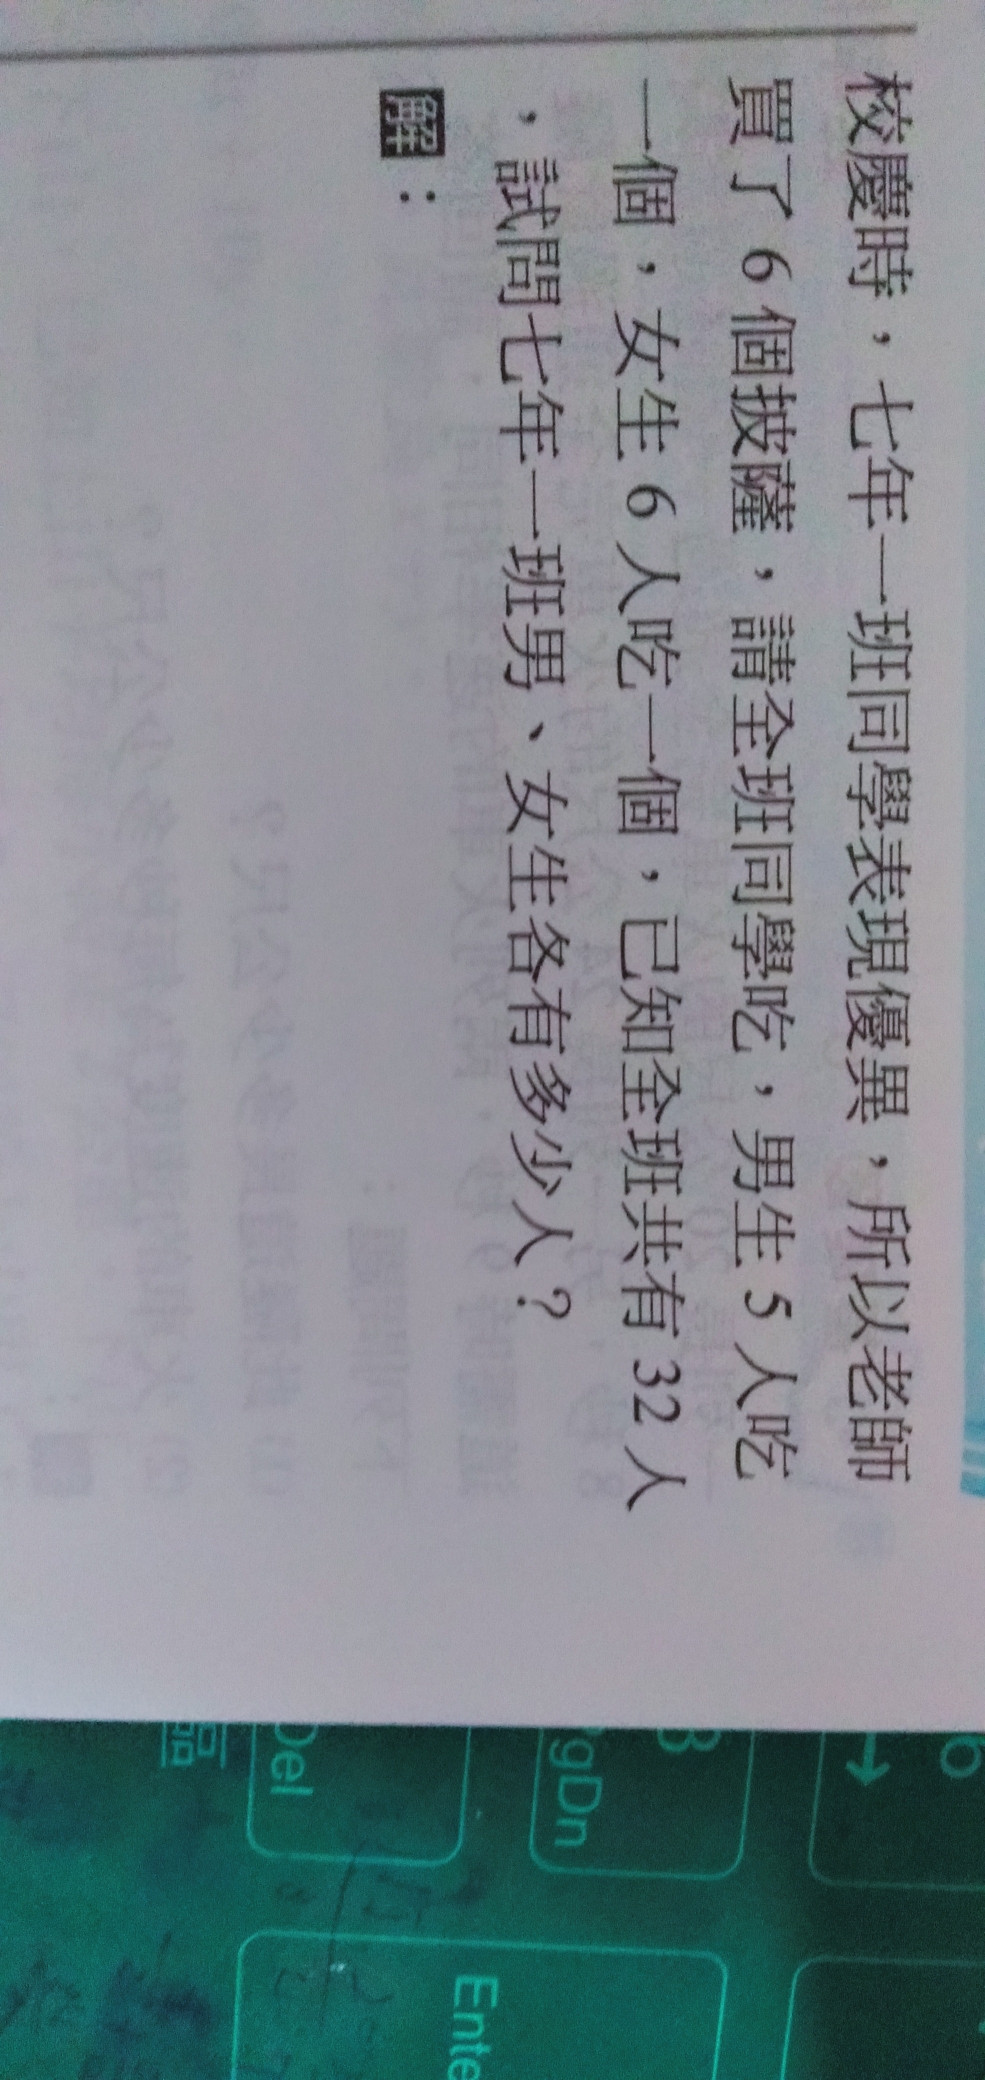 校慶時，七年一班同學表現優異，所以老師
買了 6 個披薩，請全班同學吃，男生 5 人吃
一個，女生 6 人吃一個，已知全班共有 32 人
，試問七年一班男、女生各有多少人？
解：
6
3
PgDn
Del
Ente